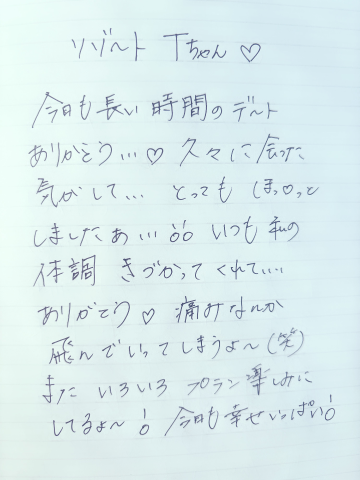 リゾート Tちゃん♡
今日も長い時間のデート
ありがとう...♡ 久々に会った
気がして... とっても ほっ♡っと
しましたぁ... いつも 私の
体調 きづかってくれて....
ありがとう♡ 痛みなんか
飛んでいってしまうよ～(笑)
また いろいろ プラン楽しみに
してるよ～! 今日も幸せいっぱい!